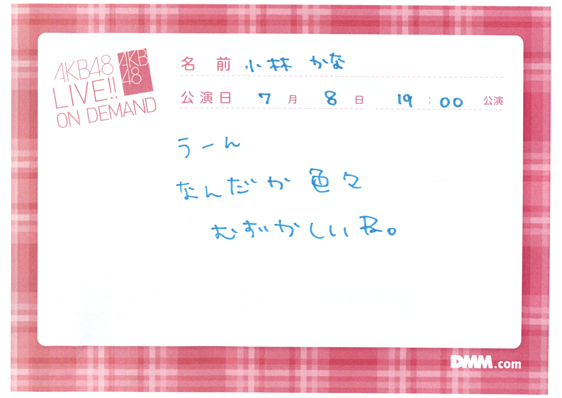 AKB48
LIVE!!
ON DEMAND
AKB
48
名 前 小林 かな
公演日 7 月 8 日 19 : 00 公演
うーん
なんだか色々
むずかしいね。
DMM.com